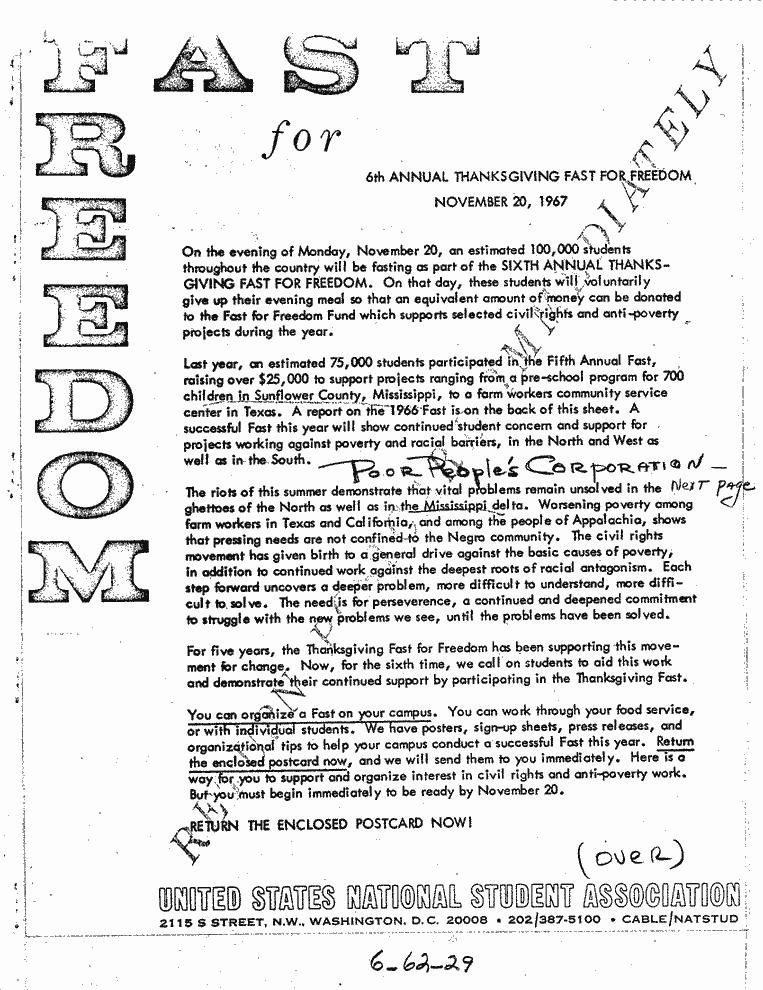 FAST
for
FREEDOM
6th ANNUAL THANKSGIVING FAST FOR FREEDOM
NOVEMBER 20, 1967
On the evening of Monday, November 20, an estimated 100,000 students
throughout the country will be fasting as part of the SIXTH ANNUAL THANKS-
GIVING FAST FOR FREEDOM. On that day, these students will voluntarily
give up their evening meal so that an equivalent amount of money can be donated
to the Fast for Freedom Fund which supports selected civil rights and anti-poverty
projects during the year.
Last year, an estimated 75,000 students participated in the Fifth Annual Fast,
raising over $25,000 to support projects ranging from a pre-school program for 700
children in Sunflower County, Mississippi, to a farm workers community service
center in Texas. A report on the 1966 Fast is on the back of this sheet. A
successful Fast this year will show continued student concern and support for
projects working against poverty and racial barriers, in the North and West as
well as in the South. — Poor People's Corporation —
Next page
The riots of this summer demonstrate that vital problems remain unsolved in the
ghettoes of the North as well as in the Mississippi delta. Worsening poverty among
farm workers in Texas and California, and among the people of Appalachia, shows
that pressing needs are not confined to the Negro community. The civil rights
movement has given birth to a general drive against the basic causes of poverty,
in addition to continued work against the deepest roots of racial antagonism. Each
step forward uncovers a deeper problem, more difficult to understand, more diffi-
cult to solve. The need is for perseverence, a continued and deepened commitment
to struggle with the new problems we see, until the problems have been solved.
For five years, the Thanksgiving Fast for Freedom has been supporting this move-
ment for change. Now, for the sixth time, we call on students to aid this work
and demonstrate their continued support by participating in the Thanksgiving Fast.
You can organize a Fast on your campus. You can work through your food service,
or with individual students. We have posters, sign-up sheets, press releases, and
organizational tips to help your campus conduct a successful Fast this year. Return
the enclosed postcard now, and we will send them to you immediately. Here is a
way for you to support and organize interest in civil rights and anti-poverty work.
But you must begin immediately to be ready by November 20.
RETURN THE ENCLOSED POSTCARD NOW!
(OVER)
UNITED STATES NATIONAL STUDENT ASSOCIATION
2115 S STREET, N.W., WASHINGTON, D.C. 20008 • 202/387-5100 • CABLE/NATSTUD
6-62-29